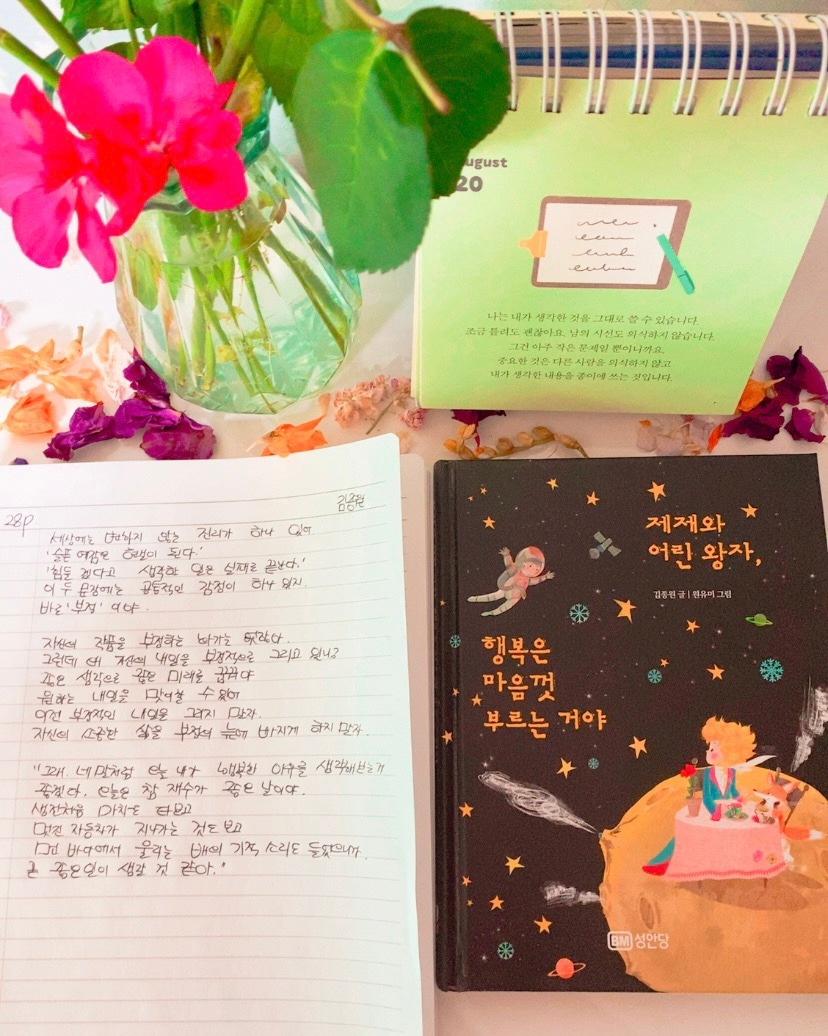 ugust
20
나는 내가 생각한 것을 그대로 쓸 수 있습니다.
조금 틀려도 괜찮아요. 남의 시선도 의식하지 않습니다.
그건 아주 작은 문제일 뿐이니까요.
중요한 것은 다른 사람을 의식하지 않고
내가 생각한 내용을 종이에 쓰는 것입니다.
28p
김종원
세상에는 변하지 않는 진리가 하나 있어
'슬픈 예감은 현실이 된다.'
'힘들 겠다고 생각한 일은 실패로 끝난다.'
이 두 문장에는 공통적인 감정이 하나 있지.
바로 '부정' 이야.
자신의 작품을 부정하는 작가는 없란다.
그런데 왜 자신의 내일을 부정적으로 그리고 있니?
좋은 생각으로 좋은 미래를 꿈꿔야
원하는 내일을 맞이할 수 있어
이전 부정적인 내일을 그리지 말자.
자신의 소중한 삶을 부정의 늪에 빠지게 하지 말자.
"그래. 네 말처럼 오늘 내가 행복한 이유를 생각해보는게
좋겠다. 오늘은 참 재수가 좋은 날이야.
생전처음 마차도 타보고
멋진 자동차가 지나가는 것도 보고
먼 바다에서 울리는 배의 기적 소리도 들었으니까.
큰 좋은일이 생길 것 같아."
제제와
어린 왕자,
김종원 글 | 원유미 그림
행복은
마음껏
부르는 거야
BM 성안당